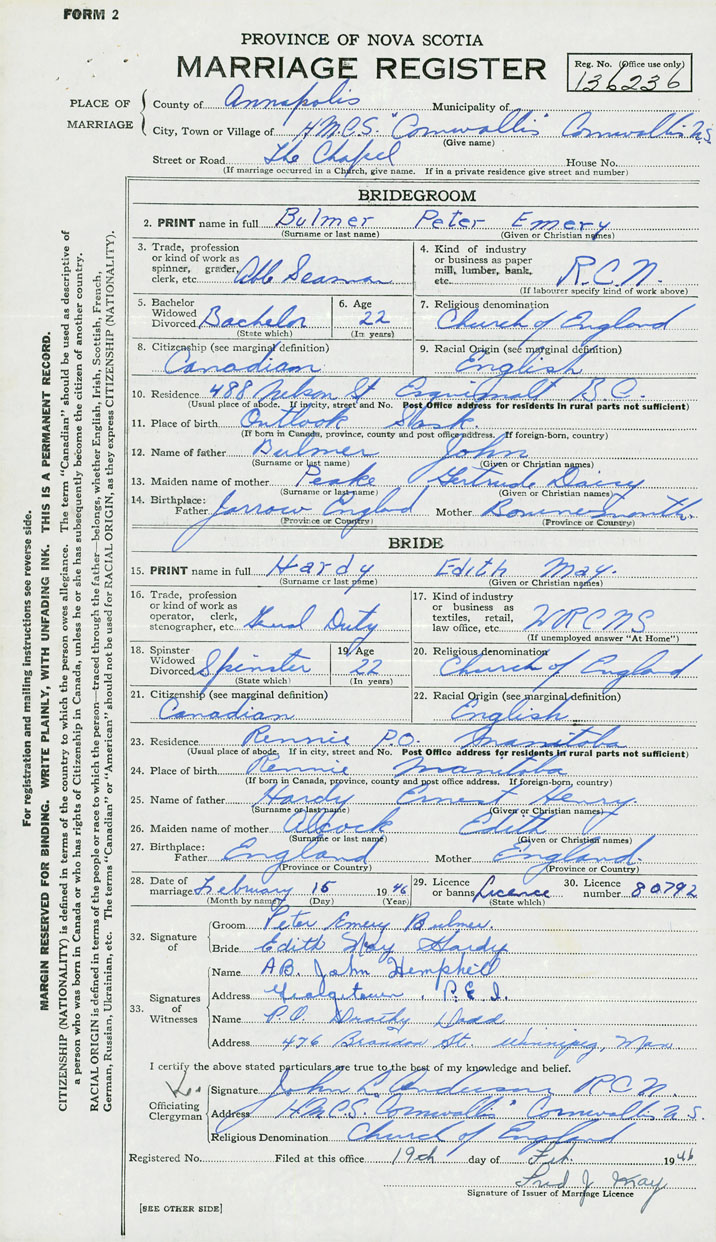 FORM 2
PROVINCE OF NOVA SCOTIA
MARRIAGE REGISTER
Reg. No. (Office use only)
136236
PLACE OF MARRIAGE
County of Annapolis Municipality of
City, Town or Village of H.M.C.S. "Cornwallis" Cornwallis N.S.
(Give name)
Street or Road The Chapel House No.
(If marriage occurred in a Church, give name. If in a private residence give street and number)
BRIDEGROOM
2. PRINT name in full Bulmer Peter Emery
(Surname or last name) (Given or Christian names)
3. Trade, profession or kind of work as spinner, grader, clerk, etc. Able Seaman
4. Kind of industry or business as paper mill, lumber, bank, etc. R.C.N.
(If labourer specify kind of work above)
5. Bachelor Widowed Divorced Bachelor
(State which)
6. Age 22
(In years)
7. Religious denomination
Church of England
8. Citizenship (see marginal definition)
Canadian
9. Racial Origin (see marginal definition)
English
10. Residence 488 Nelson St Esquimalt B.C.
(Usual place of abode. If in city, street and No. Post Office address for residents in rural parts not sufficient)
11. Place of birth Outlook Sask.
(If born in Canada, province, county and post office address. If foreign-born, country)
12. Name of father Bulmer John
(Surname or last name) (Given or Christian names)
13. Maiden name of mother Peake Gertrude Daisy
(Surname or last name) (Given or Christian names)
14. Birthplace: Father Jarrow England Mother Bournesmouth
(Province or Country) (Province or Country)
BRIDE
15. PRINT name in full Hardy Edith May.
(Surname or last name) (Given or Christian names)
16. Trade, profession or kind of work as operator, clerk, stenographer, etc. Genral Duty
17. Kind of industry or business as textiles, retail, law office, etc. WRCNS
(If unemployed answer "At Home")
18. Spinster Widowed Divorced Spinster
(State which)
19. Age 22
(In years)
20. Religious denomination
Church of England
21. Citizenship (see marginal definition)
Canadian
22. Racial Origin (see marginal definition)
English
23. Residence Rennie P.O. Manitoba
(Usual place of abode. If in city, street and No. Post Office address for residents in rural parts not sufficient)
24. Place of birth Rennie Manitoba
(If born in Canada, province, county and post office address. If foreign-born, country)
25. Name of father Hardy Ernest Henry.
(Surname or last name) (Given or Christian names)
26. Maiden name of mother Alcock Edith
(Surname or last name) (Given or Christian names)
27. Birthplace: Father England Mother England.
(Province or Country) (Province or Country)
28. Date of marriage February 15 1946
(Month by name) (Day) (Year)
29. Licence or banns Licence
(State which)
30. Licence number 80792
32. Signature of
Groom Peter Emery Bulmer.
Bride Edith May Hardy
33. Signatures of Witnesses
Name A.B. John Hemphill
Address Georgetown, P.E.I.
Name P.O. Dorothy Dodd
Address 476 Brandon St. Winnipeg, Man
I certify the above stated particulars are true to the best of my knowledge and belief.
Officiating Clergyman
Signature John L. Anderson R.C.N.
Address H.M.C.S. "Cornwallis" Cornwallis N.S.
Religious Denomination Church of England
Registered No. Filed at this office 19th day of Feb. 1946
Fred J. May
Signature of Issuer of Marriage Licence
[SEE OTHER SIDE]
For registration and mailing instructions see reverse side.
MARGIN RESERVED FOR BINDING. WRITE PLAINLY, WITH UNFADING INK. THIS IS A PERMANENT RECORD.
CITIZENSHIP (NATIONALITY) is defined in terms of the country to which the person owes allegiance. The term "Canadian" should be used as descriptive of
a person who was born in Canada or who has rights of Citizenship in Canada, unless he or she has subsequently become the citizen of another country.
RACIAL ORIGIN is defined in terms of the people or race to which the person—traced through the father—belongs, whether English, Irish, Scottish, French,
German, Russian, Ukrainian, etc. The terms "Canadian" or "American" should not be used for RACIAL ORIGIN, as they express CITIZENSHIP (NATIONALITY).